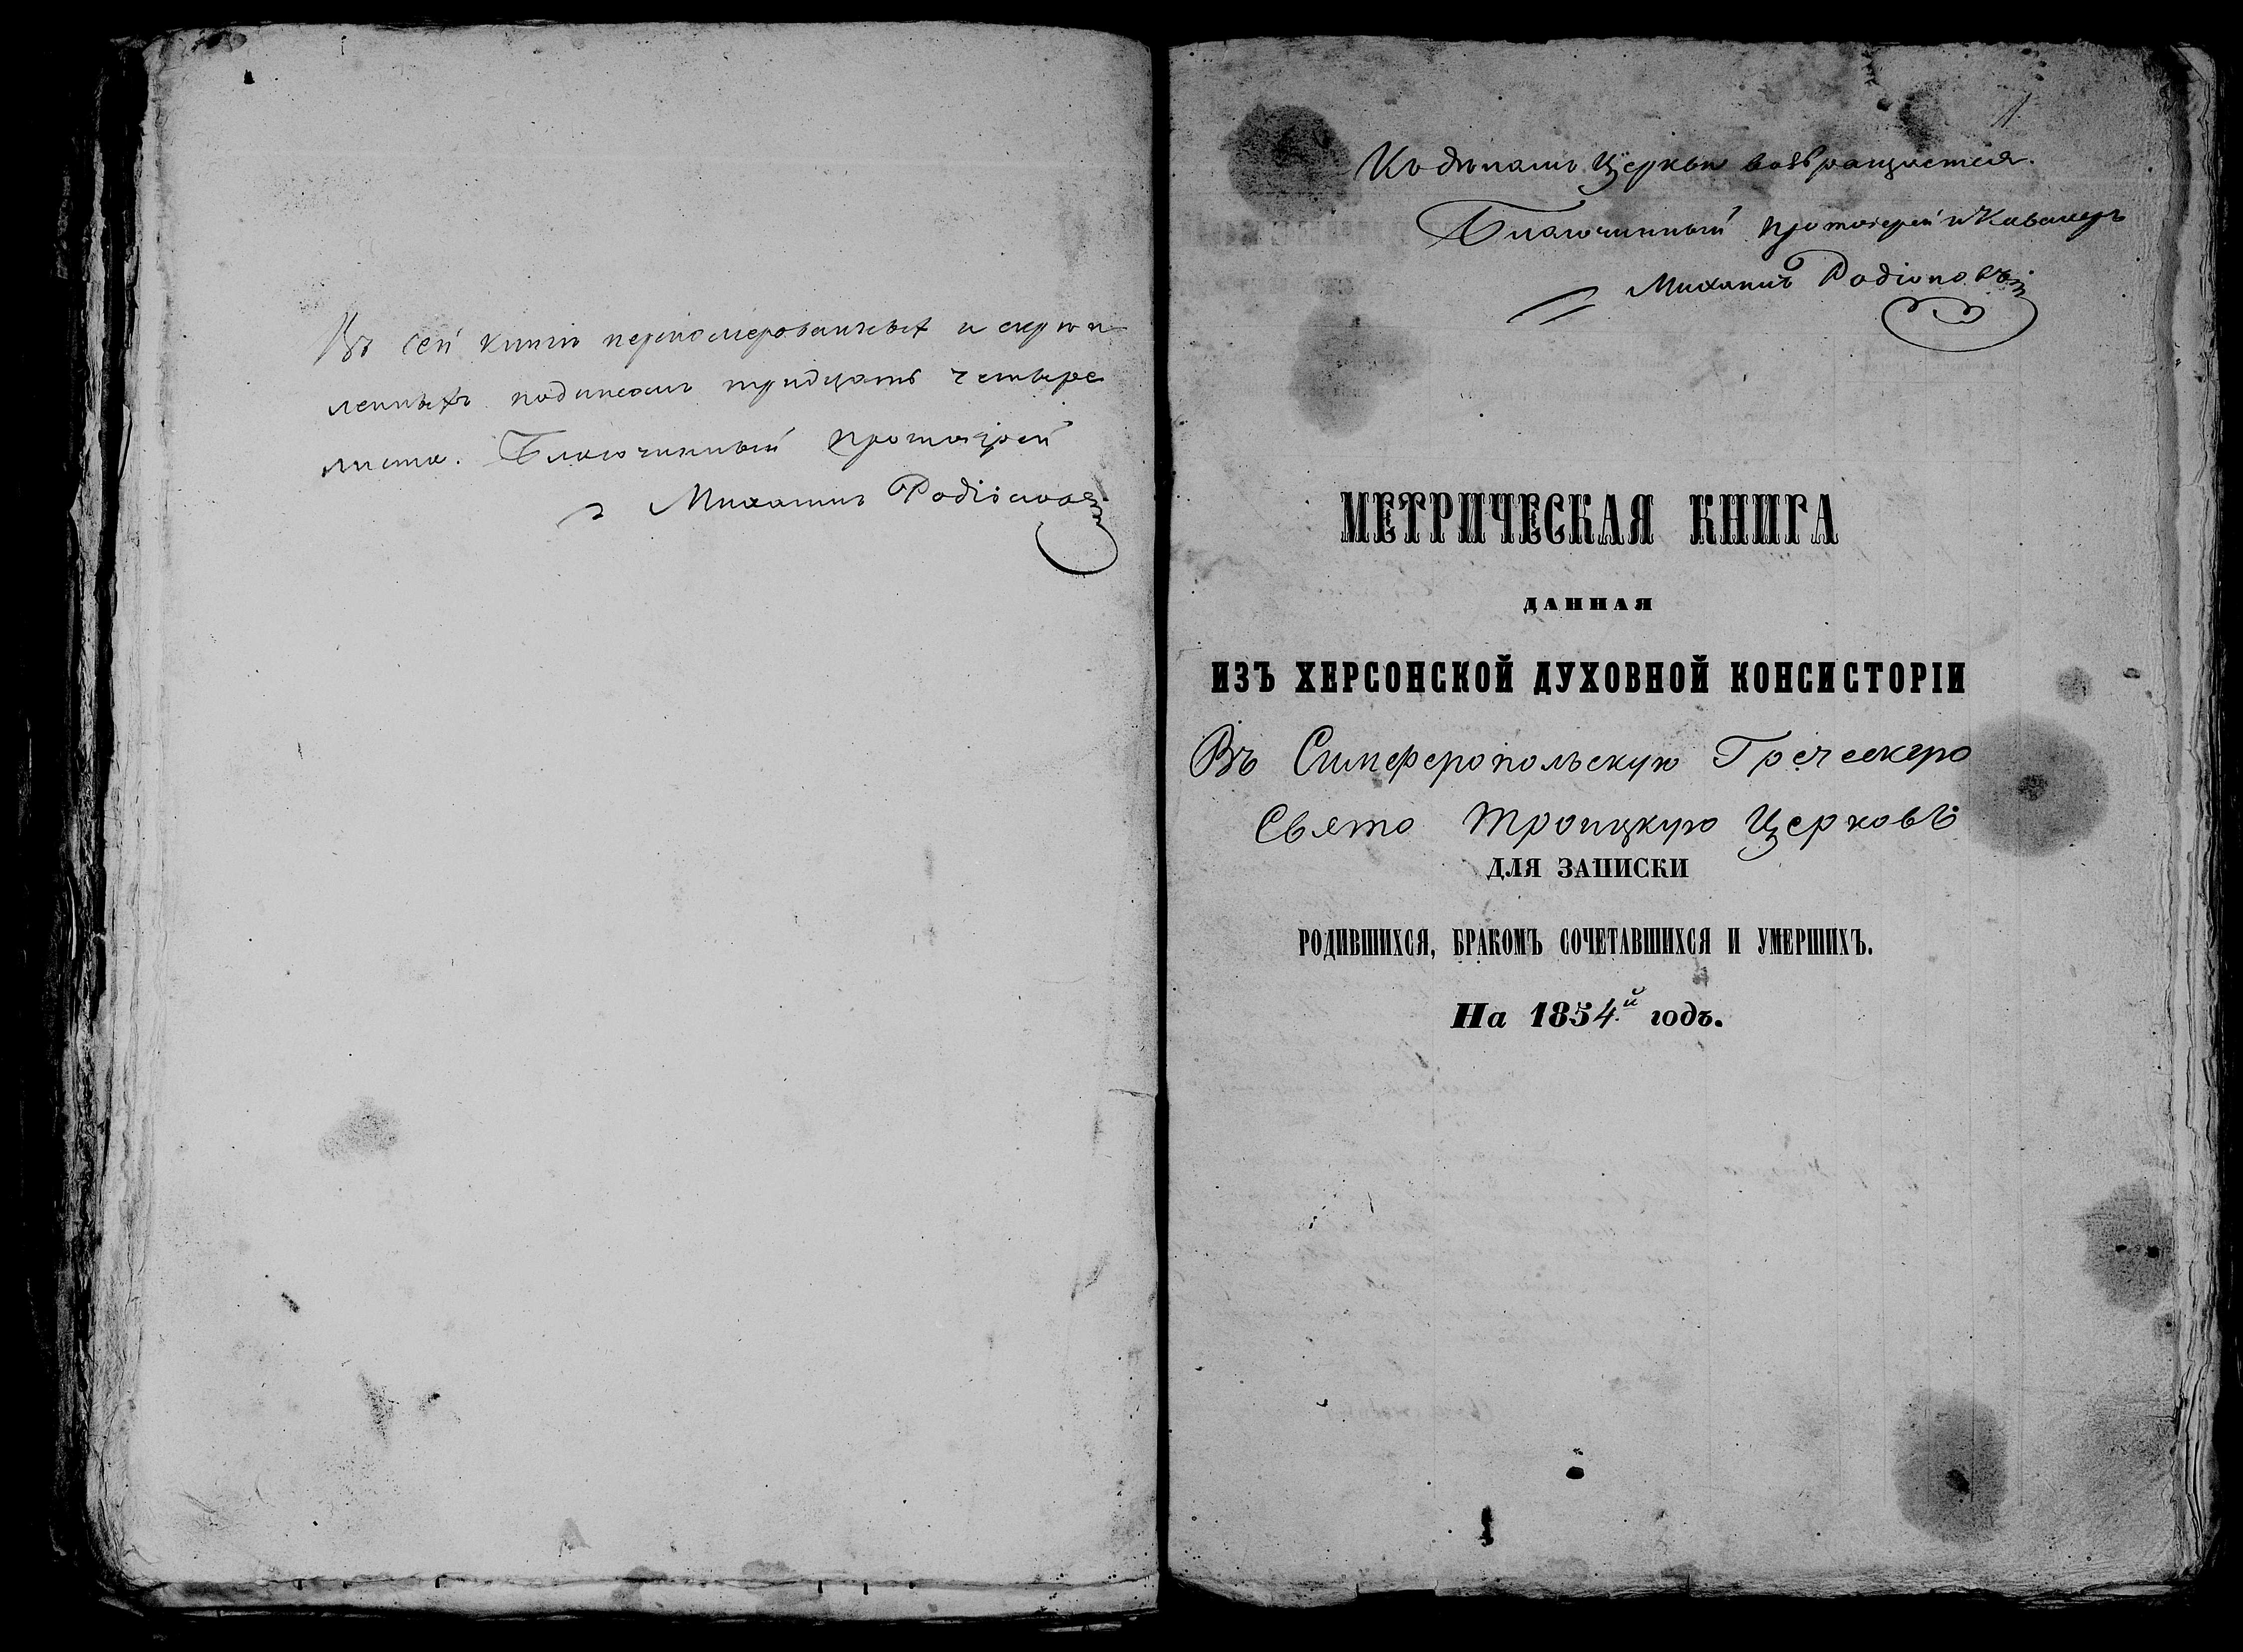 Въ сей книгѣ перенумерованныхъ и скрѣп-
ленныхъ подписомъ тридцать четыре
листа. Благочинный протоіерей
Михаилъ Родіоновъ
1.
Къ дѣламъ Церкви возвращается.
Благочинный протоіерей и Кавалеръ
Михаилъ Родіоновъ
МЕТРИЧЕСКАЯ КНИГА
ДАННАЯ
ИЗЪ ХЕРСОНСКОЙ ДУХОВНОЙ КОНСИСТОРІИ
Въ Симферопольскую Греческую
Свято Троицкую Церковь
ДЛЯ ЗАПИСКИ
РОДИВШИХСЯ, БРАКОМЪ СОЧЕТАВШИХСЯ И УМЕРШИХЪ.
На 1854й годъ.